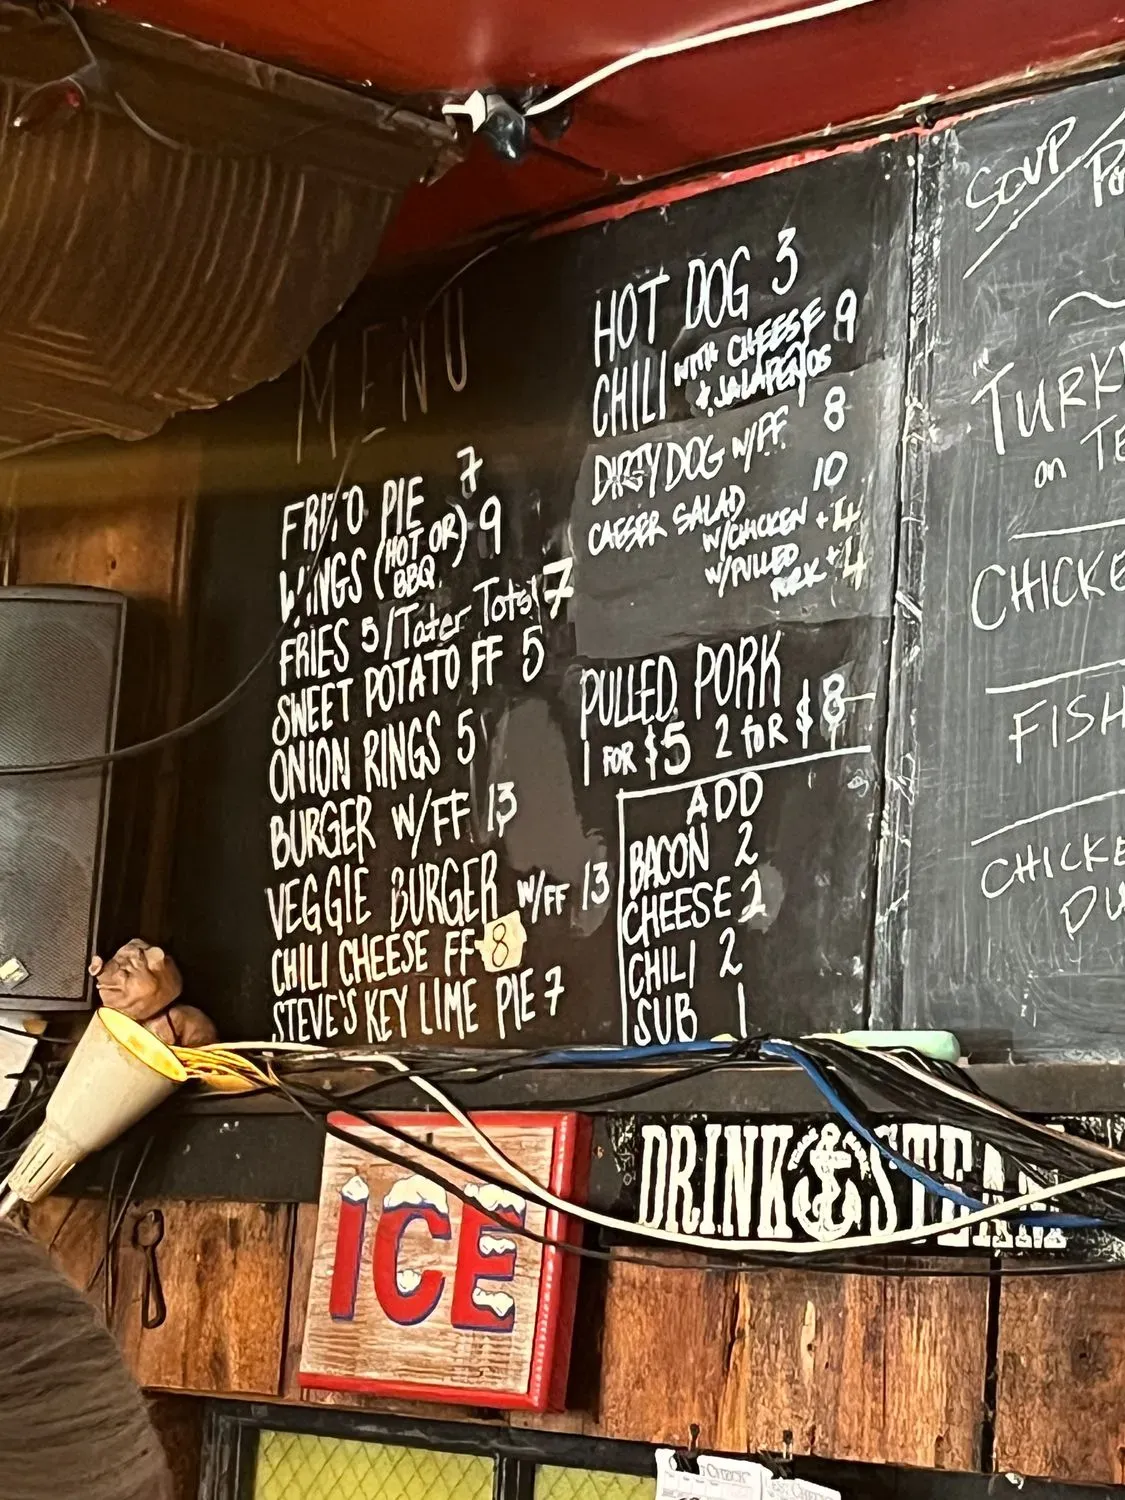 MENU
FRITO PIE 7
WINGS (HOT OR) 9
BBQ
FRIES 5/Tater Tots 7
SWEET POTATO FF 5
ONION RINGS 5
BURGER W/FF 13
VEGGIE BURGER W/FF 13
CHILI CHEESE FF 8
STEVE'S KEY LIME PIE 7
HOT DOG 3
CHILI WITH CHEESE 9
+ JALAPEÑOS
DIRTY DOG W/FF 8
CAESER SALAD 10
W/CHICKEN +4
W/PULLED
PORK +4
PULLED PORK
1 FOR $5 2 FOR $8
ADD
BACON 2
CHEESE 2
CHILI 2
SUB 1
SOUP
TURK
on TE
CHICKE
FISH
CHICKE
DU
ICE
DRINK STEAM